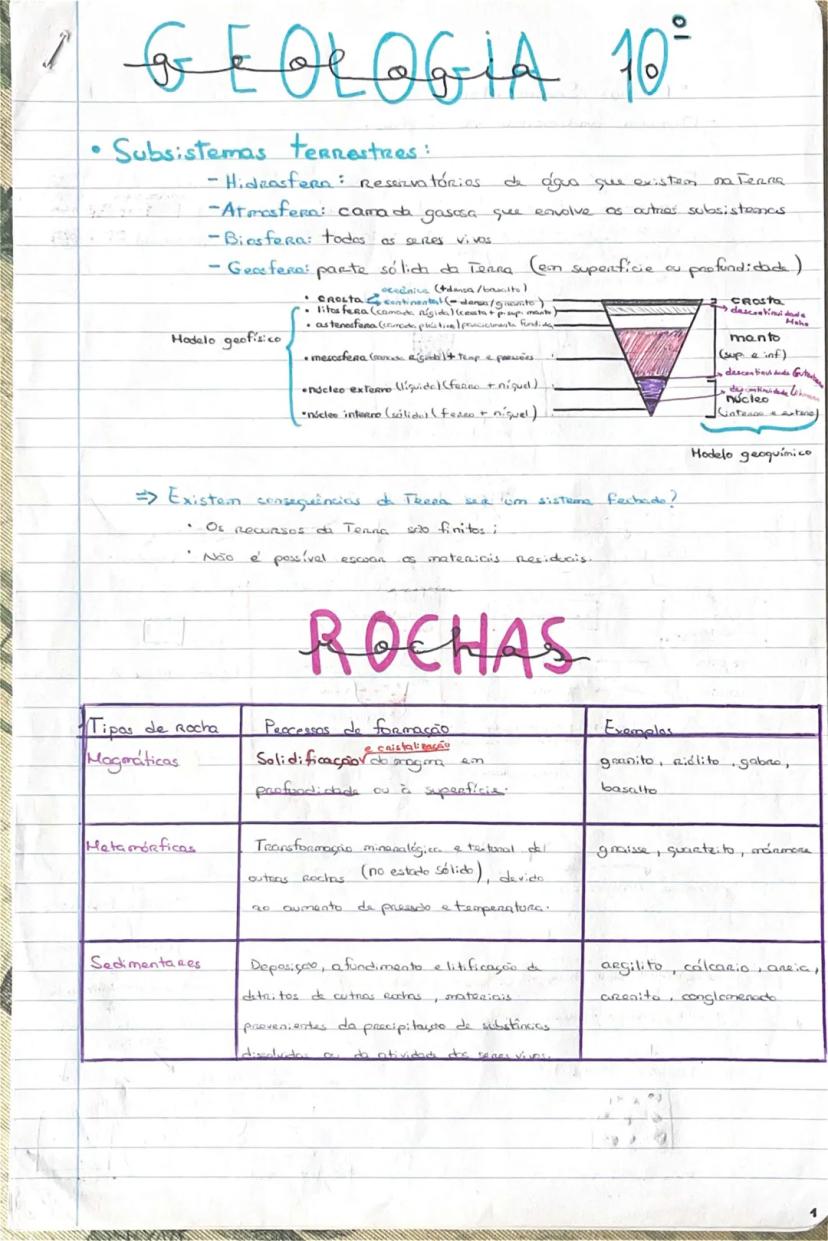 GEOLOGIA 10º
geologia 10
• Subsistemas terrestres:
- Hidrosfera: reservatórios de água que existem na Terra
- Atmosfera: camada gasosa que envolve os outros subsistemas
- Biosfera: todos os seres vivos
- Geosfera: parte sólida da Terra (em superfície ou profundidade)
oceânica (+densa/basalto)
• crosta continental (- densa/granito)
• litosfera (camada rígida) (crosta + p. sup. manto)
• astenosfera (camada plástica) parcialmente fundida
Modelo geofísico
• mesosfera (camada rígida) + temp e pressões
• núcleo externo (líquido) (ferro + níquel)
• núcleo interno (sólido) (ferro + níquel)
crosta
descontinuidade Moho
manto
(sup. e inf)
descontinuidade
descontinuidade
núcleo
(interno e externo)
Modelo geoquímico
⇒ Existem consequências da Terra ser um sistema fechado?
• Os recursos da Terra são finitos;
• Não é possível escoar os materiais residuais.
ROCHAS
rochas
Tipos de rocha Processos de formação Exemplos
Magmáticas
e cristalização
Solidificação do magma em
profundidade ou à superfície.
granito, riólito, gabro,
basalto
Metamórficas
Transformação mineralógica e textural de
outras rochas (no estado sólido), devido
ao aumento de pressão e temperatura.
gnaisse, quartzito, mármore
Sedimentares
Deposição, afundimento e litificação de
detritos de outras rochas, materiais
provenientes da precipitação de substâncias
dissolvidas ou da atividade dos seres vivos.
argilito, cálcario, areia,
arenito, conglomerado
1